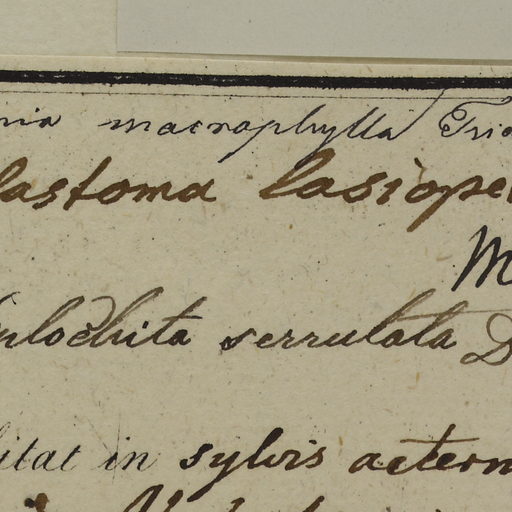 nia macrophylla Tria
lastoma lasiope
M
nlochita serrulata D
itat in sylvis aetern